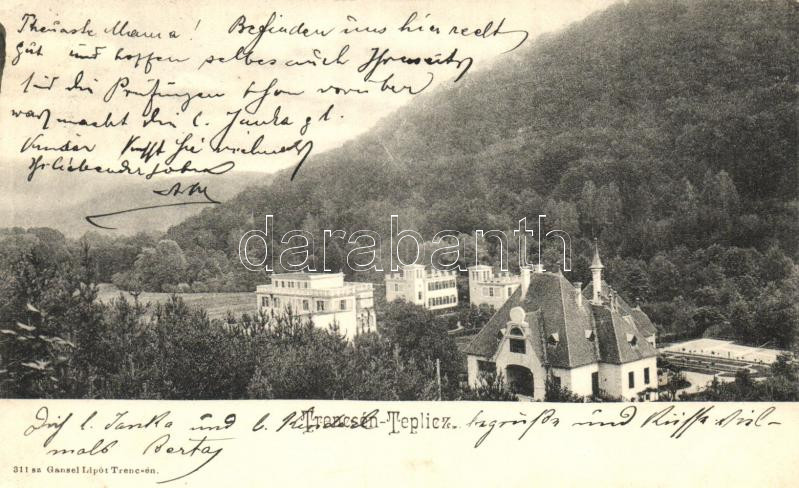 Theuerste Mama! Befinden uns hier recht
gut und hoffen selbes auch Ihrerseits
sind die Prüfungen schon vorüber
was macht die l. Janka u.
Kinder Küsst Sie vielmals
Ihr liebender Sohn
darabanth
.com
Trencsén-Teplicz.
Dich l. Janka und l. begrüße und Küsse viel-
mals Berta
311 sz Gansel Lipót Trencsén.